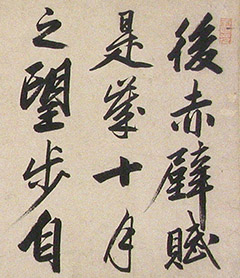 後赤壁賦
是歲十月
之望步自